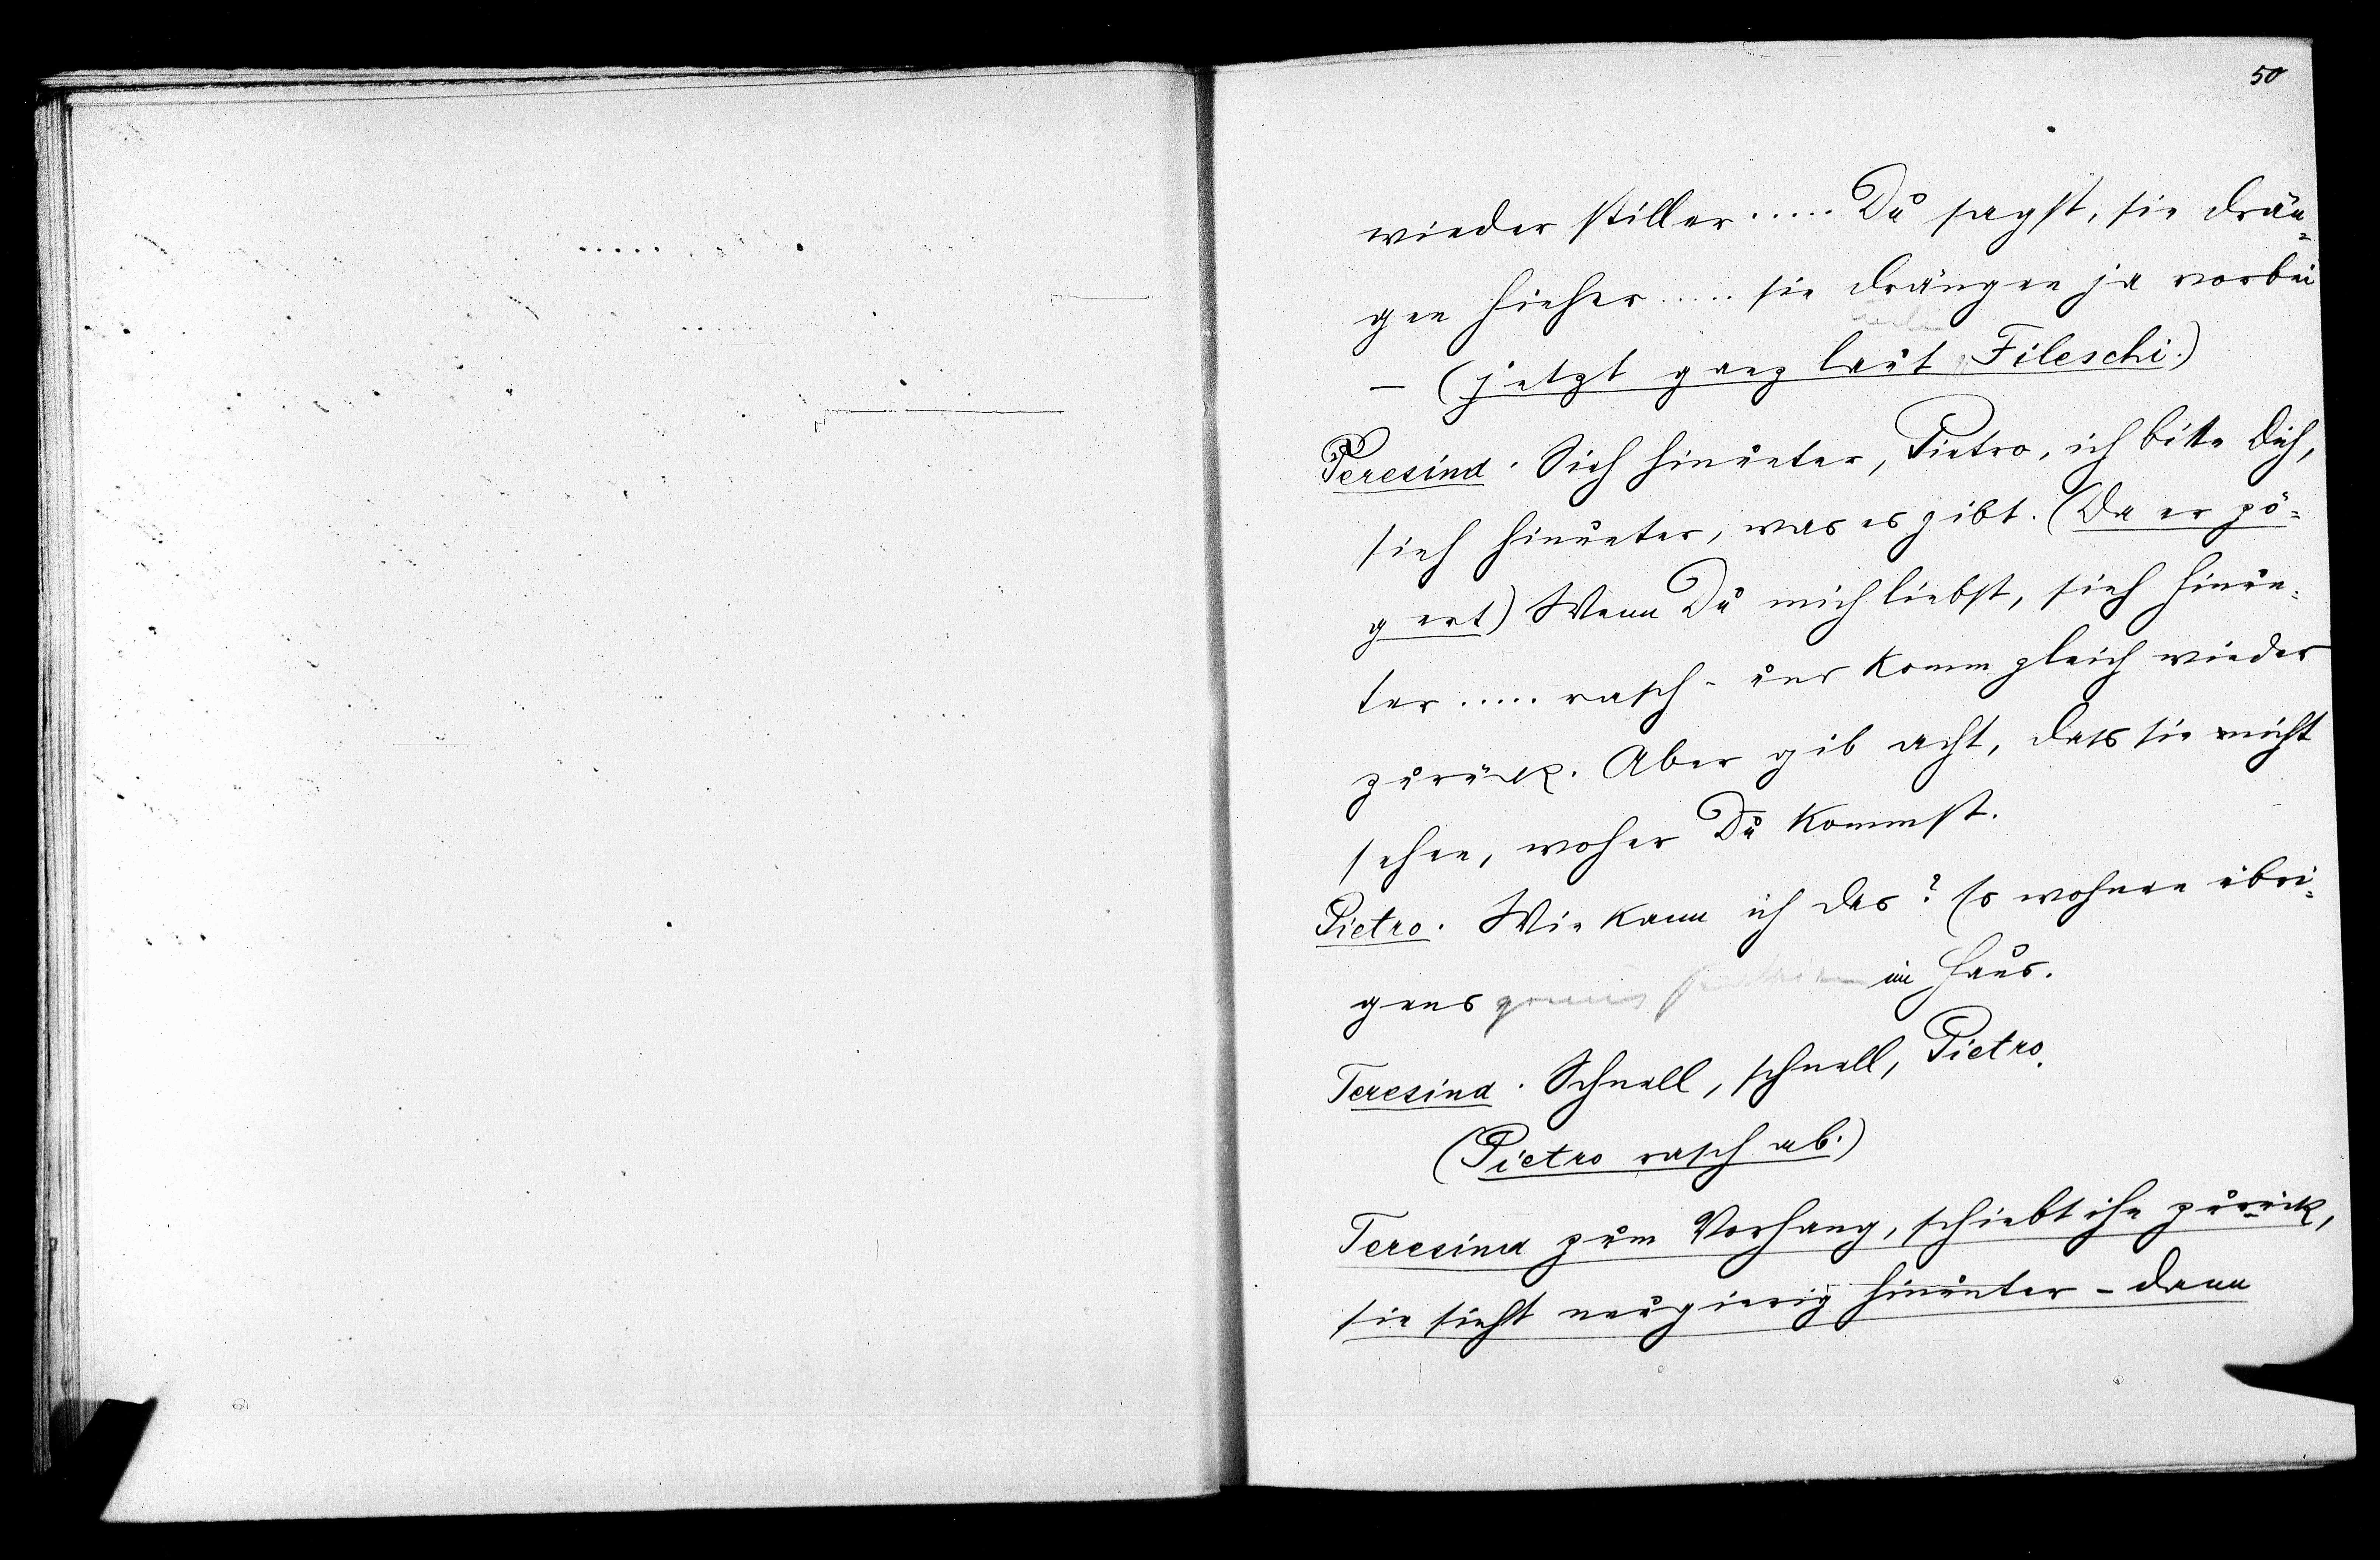 50
wieder stiller ..... Du sagst, sie drän=
gen hieher ..... sie drängen ja vorbei
– (jetzt ganz laut Fileschi.)
Teresina. Sieh hinunter, Pietro, ich bitte Dich,
sieh hinunter, was es gibt. (Da er zö=
gert) Wenn Du mich liebst, sieh hinun=
ter ..... rasch - und komm gleich wieder
zurück. Aber gib acht, dass sie nicht
sehen, woher Du kommst.
Pietro. Wie kann ich das? Es wohnen übri=
gens genug im Haus.
Teresina. Schnell, schnell, Pietro.
(Pietro rasch ab.)
Teresina zum Vorhang, schiebt ihn zurück,
sie sieht neugierig hinunter - dann